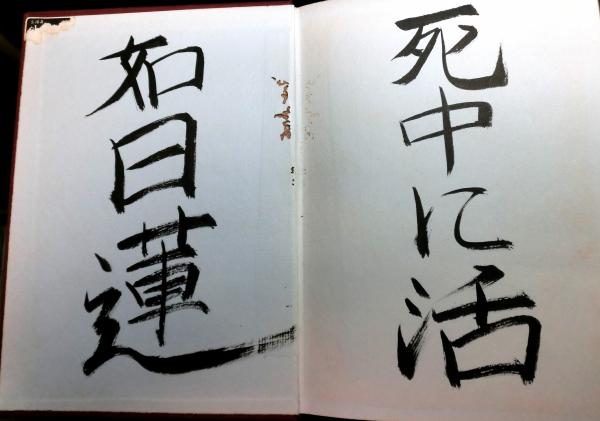 死中に活
如日蓮